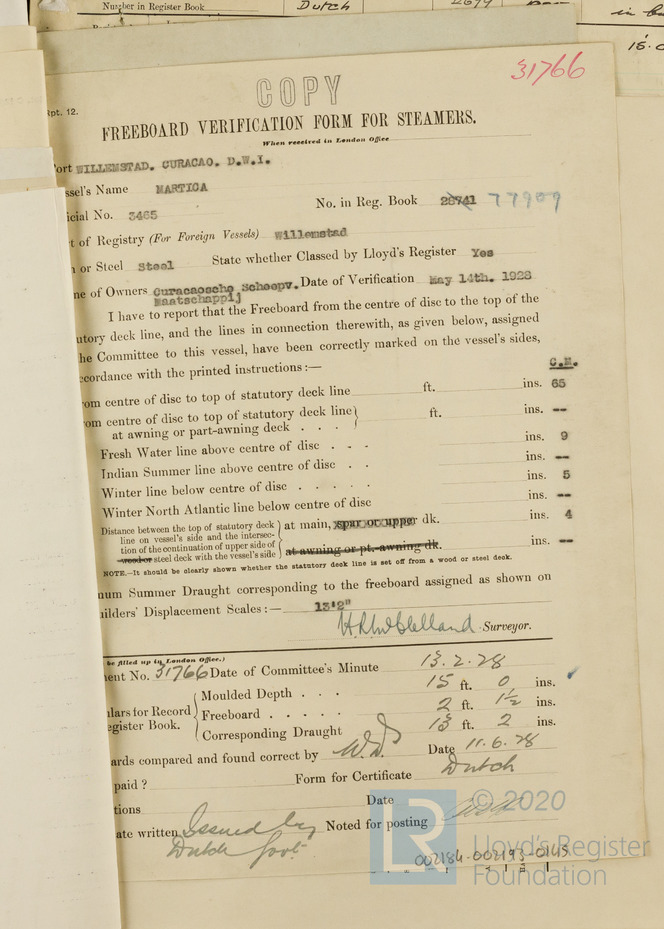 Number in Register Book
Dutch
in
15.
31766
COPY
Rpt. 12.
FREEBOARD VERIFICATION FORM FOR STEAMERS.
When received in London Office
ort WILLEMSTAD. CURACAO. D.W.I.
ssel's Name MARTICA
No. in Reg. Book 28741 77909
icial No. 3465
t of Registry (For Foreign Vessels) Willemstad
n or Steel Steel State whether Classed by Lloyd's Register Yes
ne of Owners Curacaosche Scheepv. Date of Verification May 14th. 1928
Maatschappij
I have to report that the Freeboard from the centre of disc to the top of the
utory deck line, and the lines in connection therewith, as given below, assigned
he Committee to this vessel, have been correctly marked on the vessel's sides,
ccordance with the printed instructions :—
C.M.
om centre of disc to top of statutory deck line ft. ins. 65
om centre of disc to top of statutory deck line
at awning or part-awning deck . . . ft. ins. --
Fresh Water line above centre of disc . . . ins. 9
Indian Summer line above centre of disc . . ins. --
Winter line below centre of disc . . . . . ins. 5
Winter North Atlantic line below centre of disc ins. --
Distance between the top of statutory deck
line on vessel's side and the intersec-
tion of the continuation of upper side of
wood or steel deck with the vessel's side
at main, spar or upper dk. ins. 4
at awning or pt.-awning dk. ins. --
NOTE.—It should be clearly shown whether the statutory deck line is set off from a wood or steel deck.
num Summer Draught corresponding to the freeboard assigned as shown on
uilders' Displacement Scales :— 13'2"
Surveyor.
be filled up in London Office.)
ent No. 31766 Date of Committee's Minute 13.2.28
lars for Record
egister Book.
Moulded Depth . . . 15 ft. 0 ins.
Freeboard . . . . . 2 ft. 1½ ins.
Corresponding Draught 13 ft. 2 ins.
ards compared and found correct by Date 11.6.28
paid ? Form for Certificate Dutch
tions Date
ate written Issued by Noted for posting
Dutch Govt.
© 2020
Lloyd's Register
Foundation
LR
002184-002193-0145